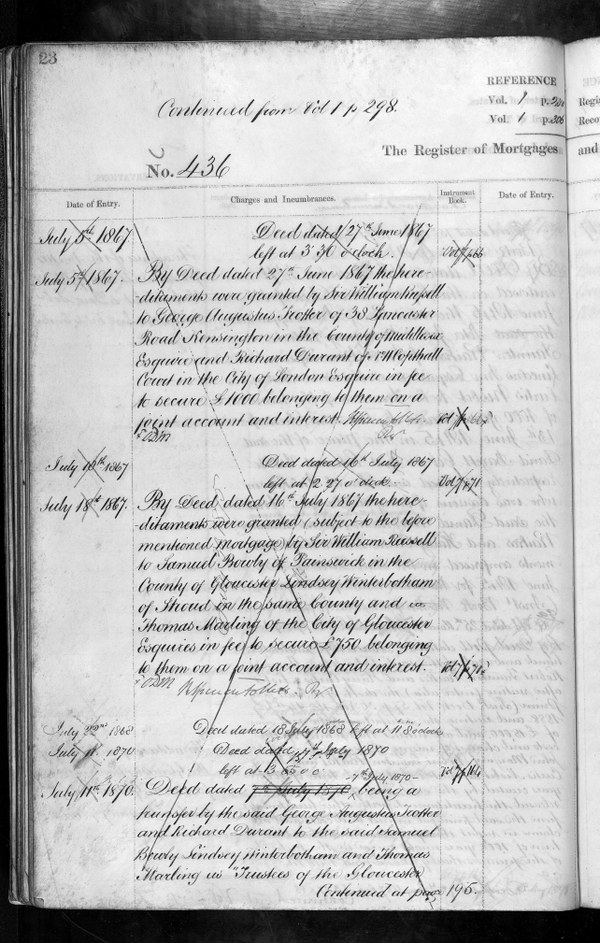 23
REFERENCE
Vol. 1 p.
Vol. 1 p. 306
Continued from Vol 1 p 298.
The Register of Mortgages
No. 436
Date of Entry.
Charges and Incumbrances.
Instrument Book.
Date of Entry.
July 5th 1867 Deed dated 27th June 1867
left at 3 30 o'clock.
July 5th 1867. By Deed dated 27th June 1867 the here-
ditaments were granted by Sir William Russell
to George Augustus Trotter of 38 Lancaster
Road Kensington in the County of Middlesex
Esquire and Richard Durant of Copthall
Court in the City of London Esquire in fee
to secure £1000 belonging to them on a
joint account and interest.
July 18th 1867 Deed dated 16th July 1867
left at 2 27 o'clock. Vol 7 p 71
July 18th 1867. By Deed dated 16th July 1867 the here-
ditaments were granted (subject to the before
mentioned mortgage) by Sir William Russell
to Samuel Bowly of Painswick in the
County of Gloucester Lindsey Winterbotham
of Stroud in the same County and
Thomas Marling of the City of Gloucester
Esquires in fee to secure £750 belonging
to them on a joint account and interest.
July 22nd 1868 Deed dated 18 July 1868 left at 11 8 o'clock
July 11 1870 Deed dated 7th July 1870
left at 3
July 11th 1870. Deed dated 7th July 1870 -7th July 1870- being a
transfer by the said George Augustus Trotter
and Richard Durant to the said Samuel
Bowly Lindsey Winterbotham and Thomas
Marling as Trustees of the Gloucester
Continued at page 195.
and